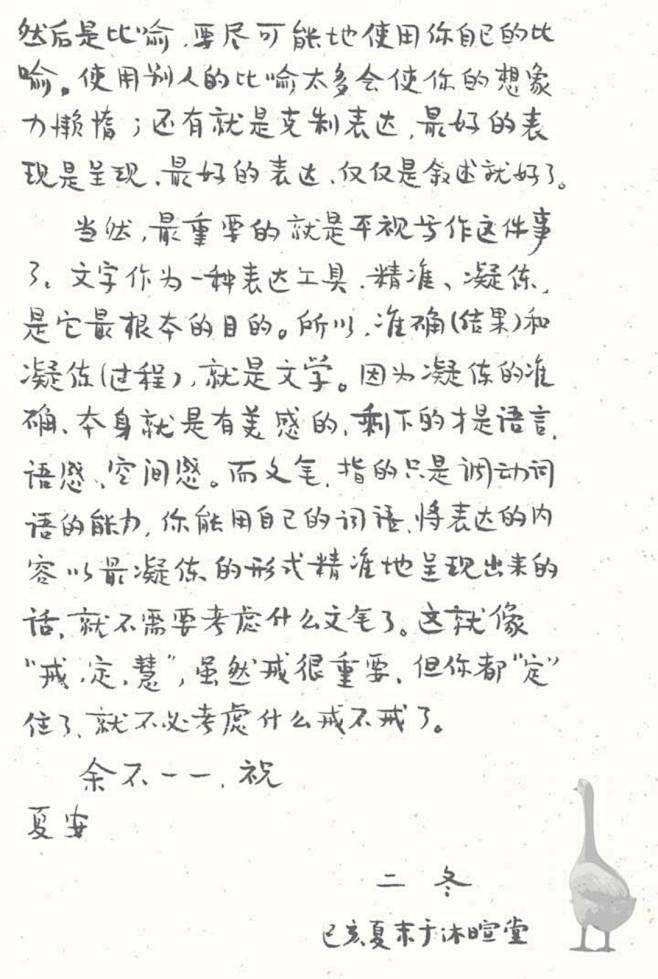 然后是比喻,要尽可能地使用你自己的比
喻。使用别人的比喻太多会使你的想象
力懒惰;还有就是克制表达,最好的表
现是呈现、最好的表达、仅仅是叙述就好了。
当然,最重要的就是平视写作这件事
了。文字作为一种表达工具,精准、凝练,
是它最根本的目的。所以,准确(结果)和
凝练(过程),就是文学。因为凝练的准
确、本身就是有美感的,剩下的才是语言、
语感、空间感。而文笔,指的只是调动词
语的能力,你能用自己的词语,将表达的内
容以最凝练的形式精准地呈现出来的
话,就不需要考虑什么文笔了。这就像
“戒,定,慧”,虽然戒很重要,但你都“定”
住了,就不必考虑什么戒不戒了。
余不一一,祝
夏安
二冬
己亥夏末于沐暄堂